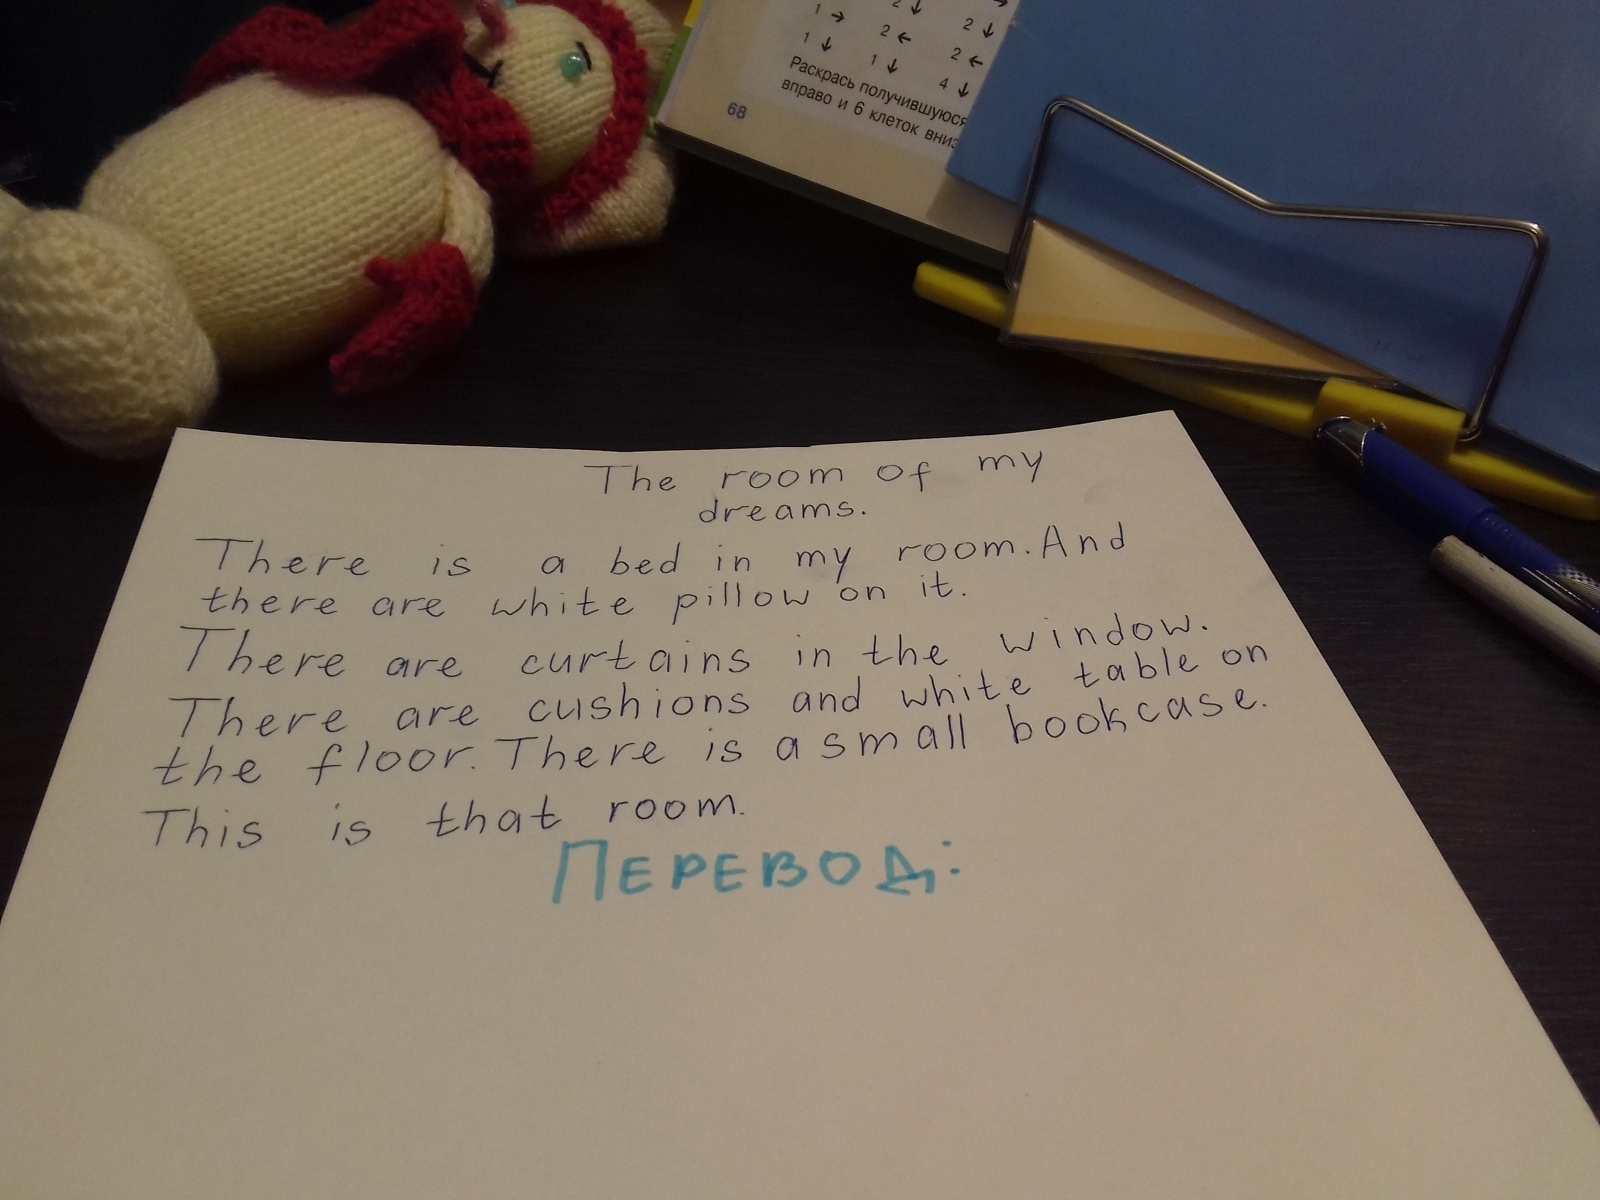 1 → 2 ↓ 2 ↓
1 ↓ 2 ← 2 ←
1 ↓ 4 ↓
Раскрась получившуюся
вправо и 6 клеток вниз
68
The room of my
dreams.
There is a bed in my room. And
there are white pillow on it.
There are curtains in the window.
There are cushions and white table on
the floor. There is a small bookcase.
This is that room.
ПЕРЕВОД: